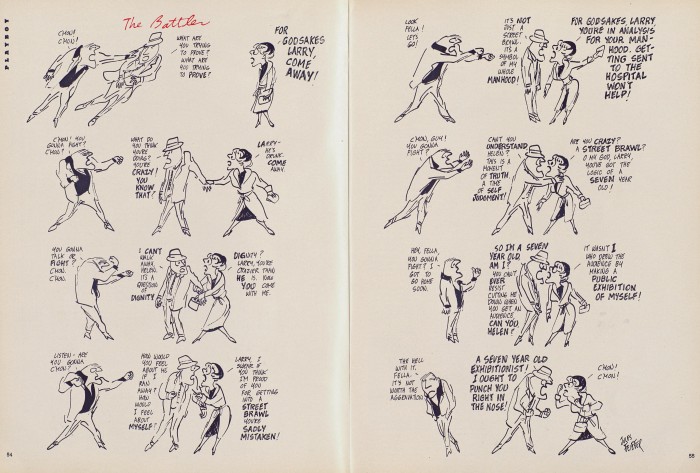 PLAYBOY
The Battler
C'MON!
C'MON!
WHAT ARE
YOU TRYING
TO PROVE?
WHAT ARE
YOU TRYING
TO PROVE?
FOR
GODSAKES
LARRY,
COME
AWAY!
C'MON! YOU
GONNA FIGHT?
C'MON!
WHAT DO
YOU THINK
YOU'RE
DOING?
YOU'RE
CRAZY!
YOU
KNOW
THAT?
LARRY-
HE'S
DRUNK.
COME
AWAY.
YOU GONNA
TALK
OR
FIGHT?
C'MON.
C'MON.
I CAN'T
WALK
AWAY,
HELEN.
IT'S A
QUESTION
OF
DIGNITY.
DIGNITY?
LARRY, YOU'RE
CRAZIER THAN
HE IS. NOW
YOU COME
WITH ME.
LISTEN- ARE
YOU GONNA
C'MON?
HOW WOULD
YOU FEEL
ABOUT ME
IF I
RAN
AWAY?
HOW
WOULD
I FEEL
ABOUT
MYSELF?
LARRY, I
SWEAR IF
YOU THINK
I'M PROUD
OF YOU
FOR GETTING
INTO A
STREET
BRAWL
YOU'RE
SADLY
MISTAKEN!
94
LOOK
FELLA!
LETS
GO!
IT'S NOT
JUST A
STREET
BRAWL.
IT'S A
SYMBOL
OF MY
WHOLE
MANHOOD!
FOR GODSAKES, LARRY,
YOU'RE IN ANALYSIS
FOR YOUR MAN-
HOOD. GET-
TING SENT
TO THE
HOSPITAL
WON'T
HELP!
C'MON, GUY!
YOU GONNA
FIGHT?
CAN'T YOU
UNDERSTAND
HELEN?
THIS IS A
MOMENT
OF TRUTH.
A TIME
OF SELF
JUDGMENT!
ARE YOU CRAZY?
A STREET BRAWL?
O MY GOD, LARRY,
YOU'VE GOT THE
LOGIC OF A
SEVEN YEAR
OLD!
HEY, FELLA,
YOU GONNA
FIGHT? I
GOT TO
GO HOME
SOON.
SO I'M A SEVEN
YEAR OLD,
AM I?
YOU CAN'T
EVER
RESIST
CUTTING ME
DOWN WHEN
YOU GET
AN
AUDIENCE,
CAN YOU,
HELEN?
IT WASN'T I
WHO DREW THE
AUDIENCE BY
MAKING A
PUBLIC
EXHIBITION
OF MYSELF!
THE HELL
WITH IT,
FELLA-
IT'S NOT
WORTH THE
AGGRAVATION
A SEVEN YEAR OLD
EXHIBITIONIST!
I OUGHT TO
PUNCH YOU
RIGHT IN
THE NOSE!
C'MON!
C'MON!
JULES
FEIFFER